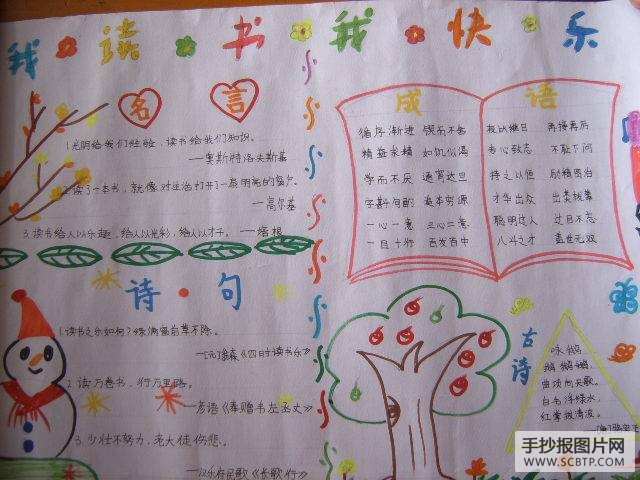 我读书我快乐
名言
1.光阴给我们经验，读书给我们知识。
——奥斯特洛夫斯基
2.读了一本书，就像对生活打开了一扇明亮的窗户。
——高尔基
3.读书给人以乐趣，给人以光彩，给人以才干。——培根
诗·句
1.读书之乐如何？绿满窗前草不除。
——[元]翁森《四时读书乐》
2.读万卷书，行万里路。
——《奉赠韦左丞丈》
3.少壮不努力，老大徒伤悲。
——汉乐府民歌《长歌行》
成语
循序渐进 锲而不舍 夜以继日 再接再厉
精益求精 如饥似渴 专心致志 不耻下问
学而不厌 通宵达旦 持之以恒 励精图治
字斟句酌 追本穷源 才华出众 出类拔萃
一心一意 三心二意 聪明过人 过目不忘
一目十行 百发百中 八斗之才 盖世无双
古诗
咏鹅
鹅鹅鹅，
曲项向天歌。
白毛浮绿水，
红掌拨清波。
手抄报图片网
WWW.SCBTP.COM